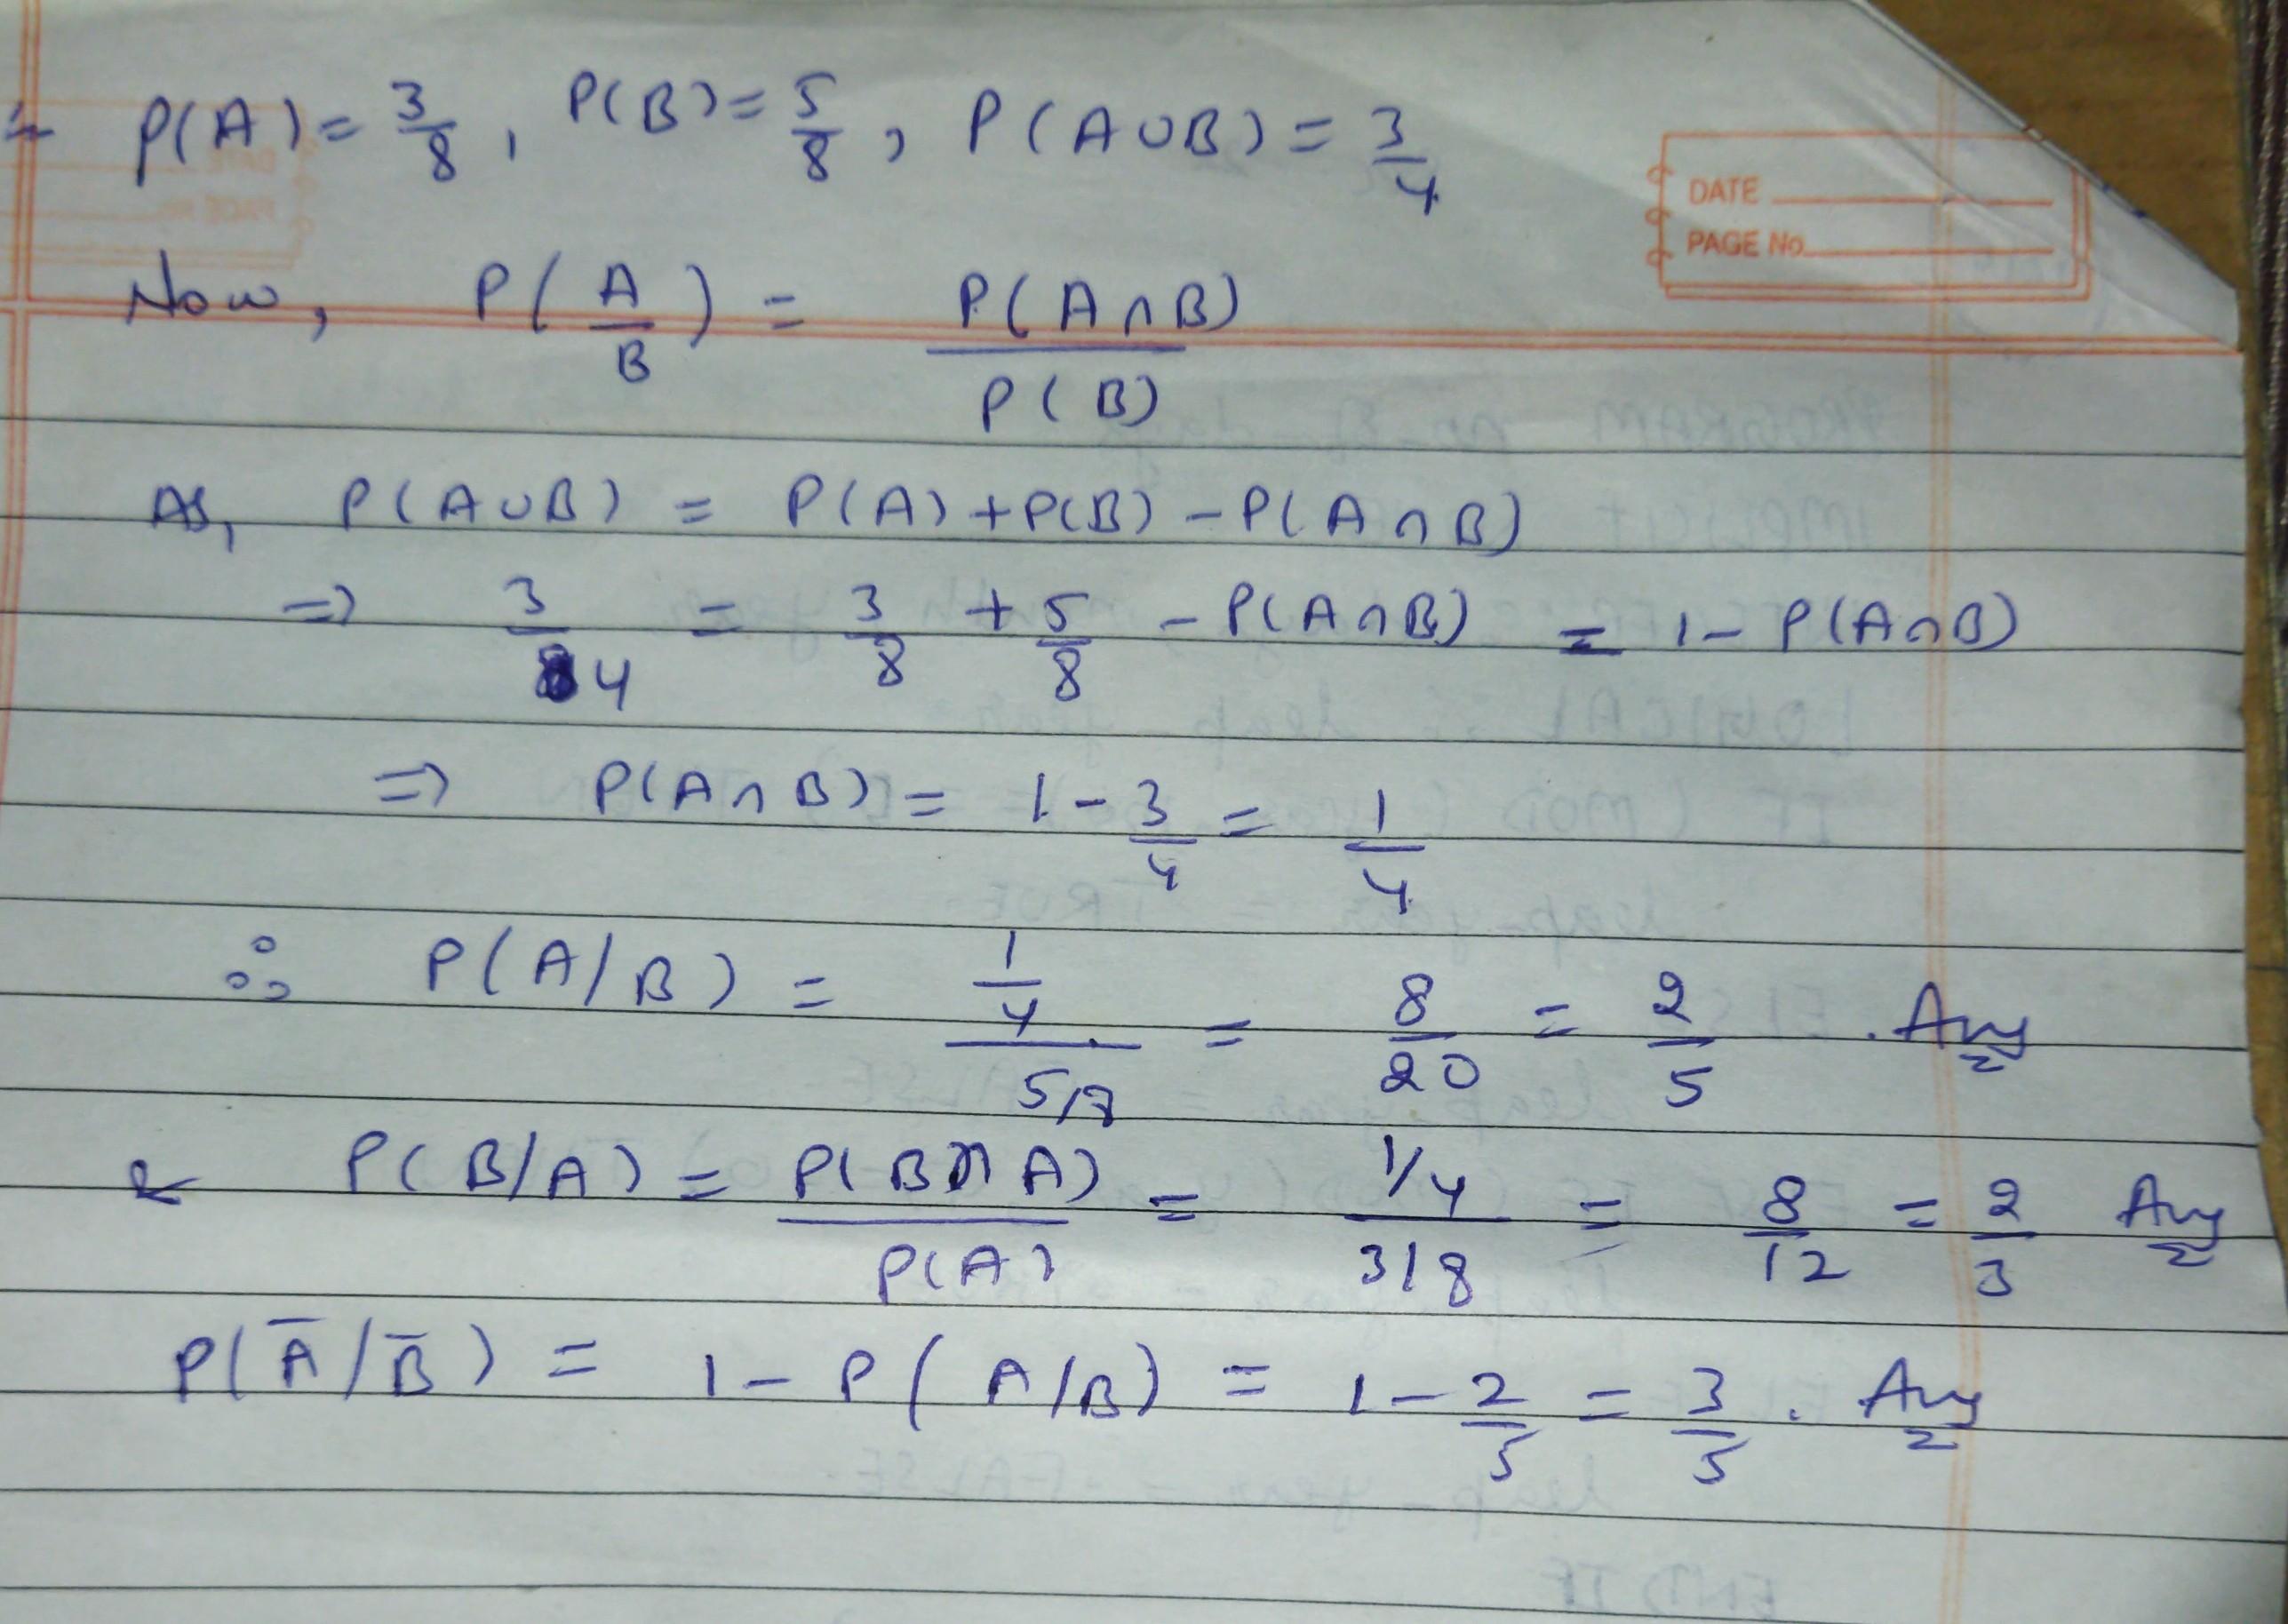 P(A) = 3/8, P(B) = 5/8, P(A∪B) = 3/4
DATE
PAGE No.
Now, P(A/B) = P(A∩B)/P(B)
As, P(A∪B) = P(A) + P(B) - P(A∩B)
⇒ 3/4 = 3/8 + 5/8 - P(A∩B) = 1 - P(A∩B)
⇒ P(A∩B) = 1 - 3/4 = 1/4
∴ P(A/B) = (1/4)/(5/8) = 8/20 = 2/5 . Ans
& P(B/A) = P(B∩A)/P(A) = (1/4)/(3/8) = 8/12 = 2/3 Ans
P(Ā/B̄) = 1 - P(A/B) = 1 - 2/5 = 3/5 . Ans